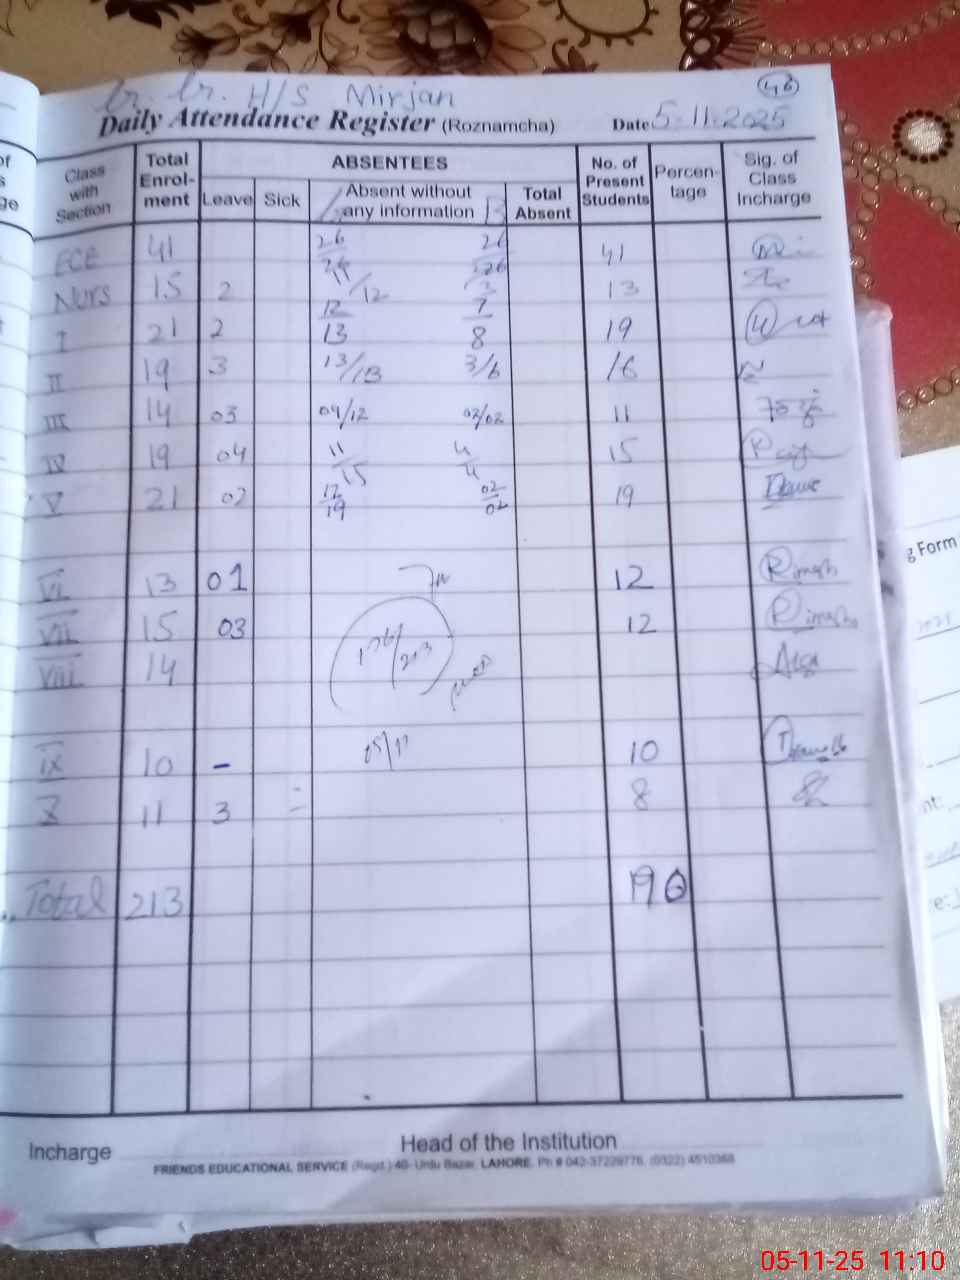 46
Gr. Gr. H/S Mirjan
Daily Attendance Register (Roznamcha) Date 5-11-2025
Class with Section
Total Enrol-ment
ABSENTEES
Leave
Sick
Absent without any information
B
Total Absent
No. of Present Students
Percen-tage
Sig. of Class Incharge
ECE 41 26/26 26/26 41
Nurs 15 2 /12 13
I 21 2 12/13 7/8 19
II 19 3 13/13 3/6 16
III 14 03 04/12 02/02 11
IV 19 04 11/15 4/4 15
V 21 02 12/19 02/02 19
VI 13 01 12 Rimsh
VII 15 03 12 Rimsha
VIII 14 /213
IX 10 - 05/11 10
X 11 3 8
Total 213 190
Incharge Head of the Institution
FRIENDS EDUCATIONAL SERVICE (Regd.) 40- Urdu Bazar, LAHORE. Ph # 042-37229776, (0322) 4510368
g Form
05-11-25 11:10